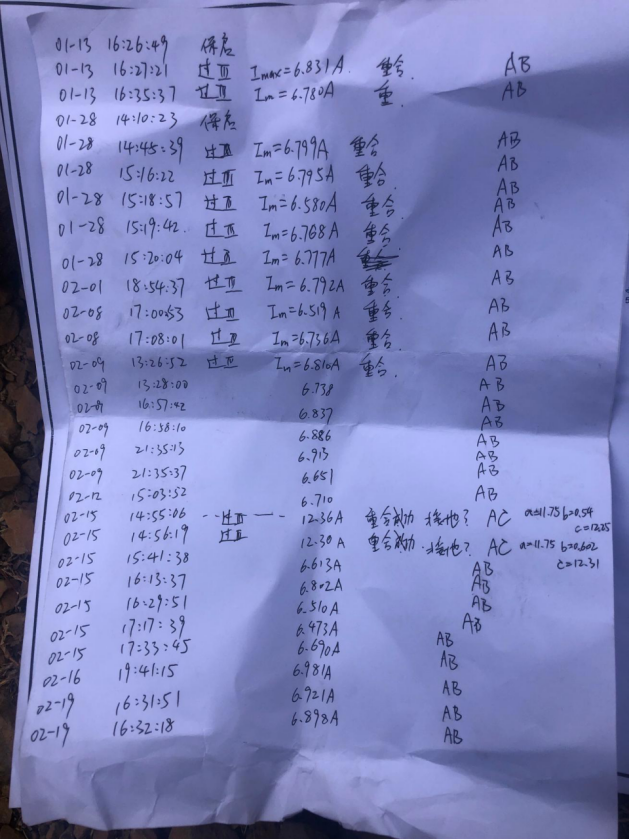 01-13 16:26:49 保启
01-13 16:27:21 过Ⅲ Imax=6.831A. 重合 AB
01-13 16:35:37 过Ⅲ Im=6.780A 重. AB
01-28 14:10:23 保启
01-28 14:45:39 过Ⅲ Im=6.799A 重合 AB
01-28 15:16:22 过Ⅲ Im=6.795A 重合. AB
01-28 15:18:57 过Ⅲ Im=6.580A 重合. AB
01-28 15:19:42. 过Ⅲ Im=6.768A 重合. AB
01-28 15:20:04 过Ⅲ Im=6.777A AB
02-01 18:54:37 过Ⅲ Im=6.792A 重合. AB
02-08 17:00:53 过Ⅲ Im=6.519A 重合. AB
02-08 17:08:01 过Ⅲ Im=6.736A 重合 AB
02-09 13:26:52 过Ⅲ Im=6.810A 重合. AB
02-09 13:28:00 6.738 AB
02-09 16:57:42 6.837 AB
02-09 16:58:10 6.886 AB
02-09 21:35:13 6.913 AB
02-09 21:35:37 6.651 AB
02-12 15:03:52 6.710 AB
02-15 14:55:06 过Ⅲ 12.36A 重合成功 接地? AC a=11.75 b=0.54
c=12.25
02-15 14:56:19 过Ⅲ 12.30A 重合成功. 接地? AC a=11.75 b=0.602
c=12.31
02-15 15:41:38 6.613A AB
02-15 16:13:37 6.802A AB
02-15 16:29:51 6.510A AB
02-15 17:17:39 6.473A AB
02-15 17:33:45 6.690A AB
02-16 19:41:15 6.981A AB
02-19 16:31:51 6.921A AB
02-19 16:32:18 6.898A AB
AB